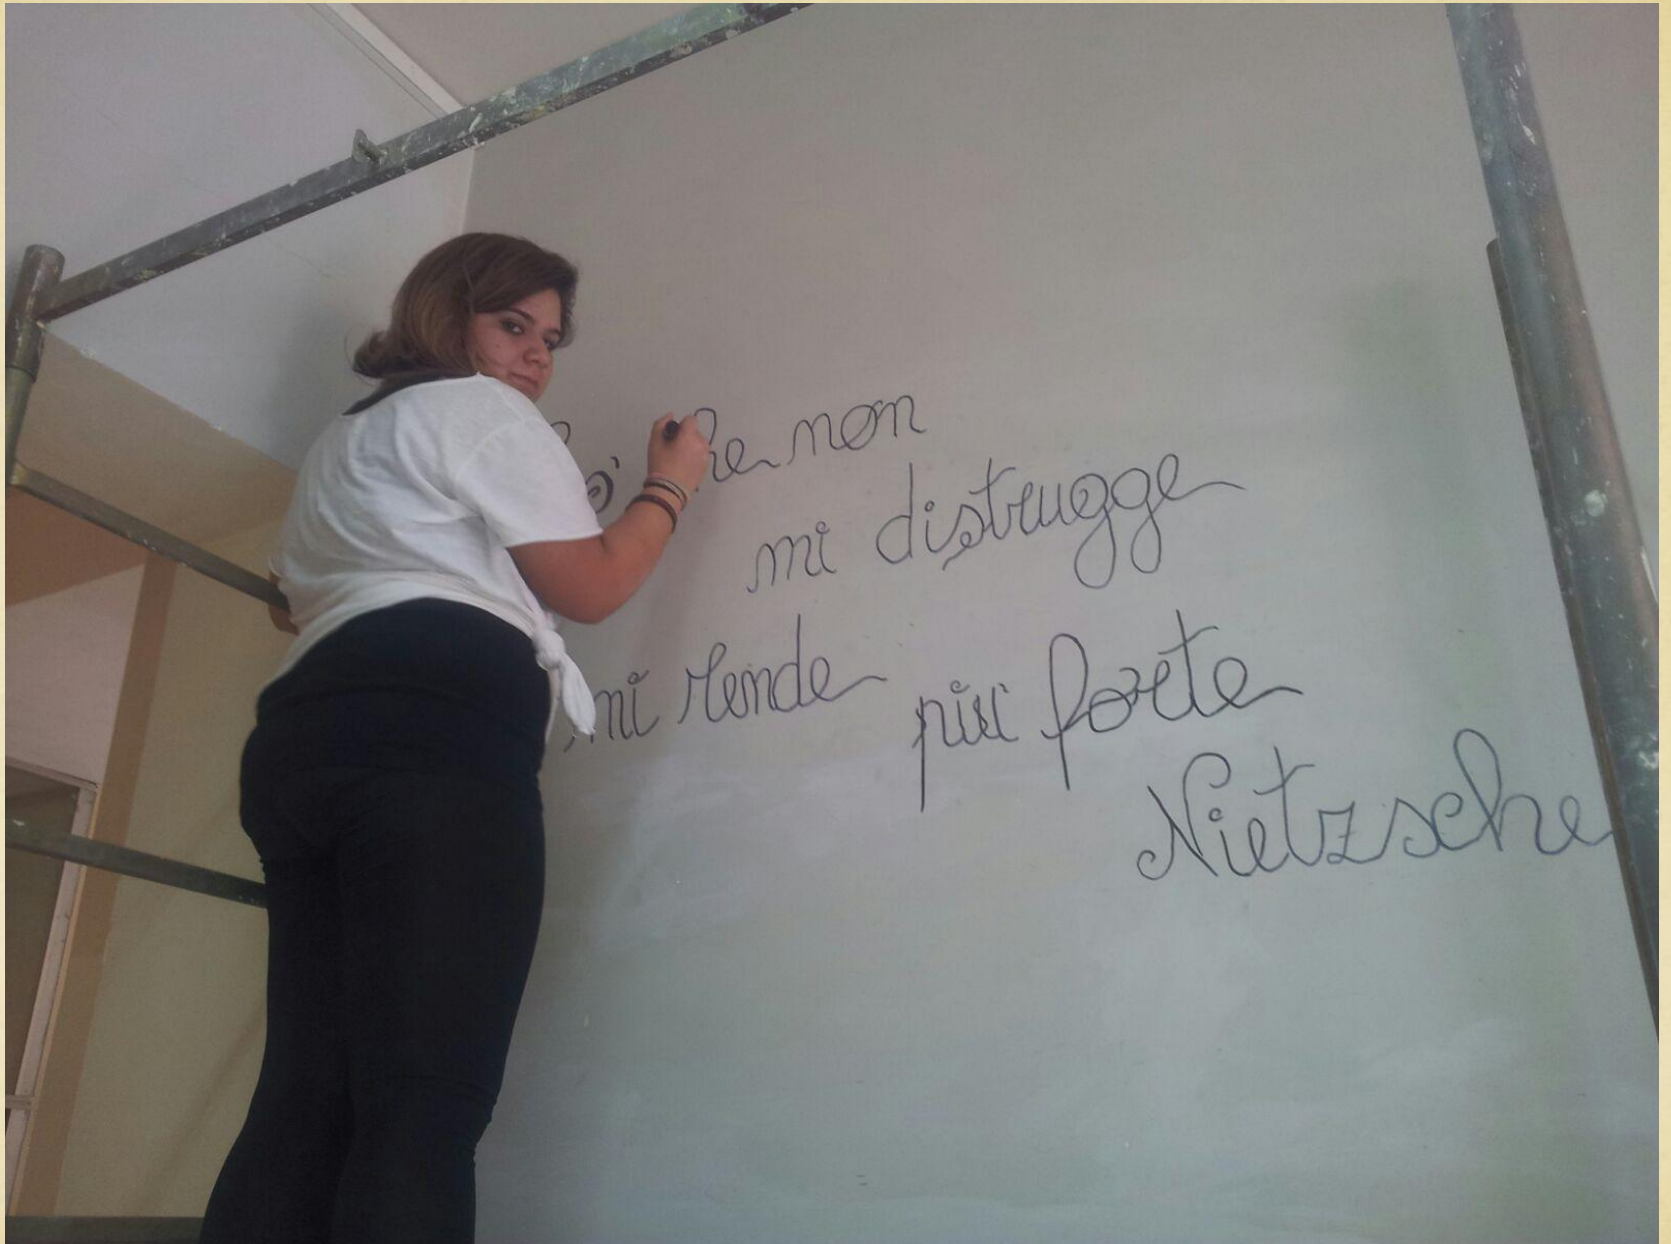 non
mi distrugge
mi rende più forte
Nietzsche